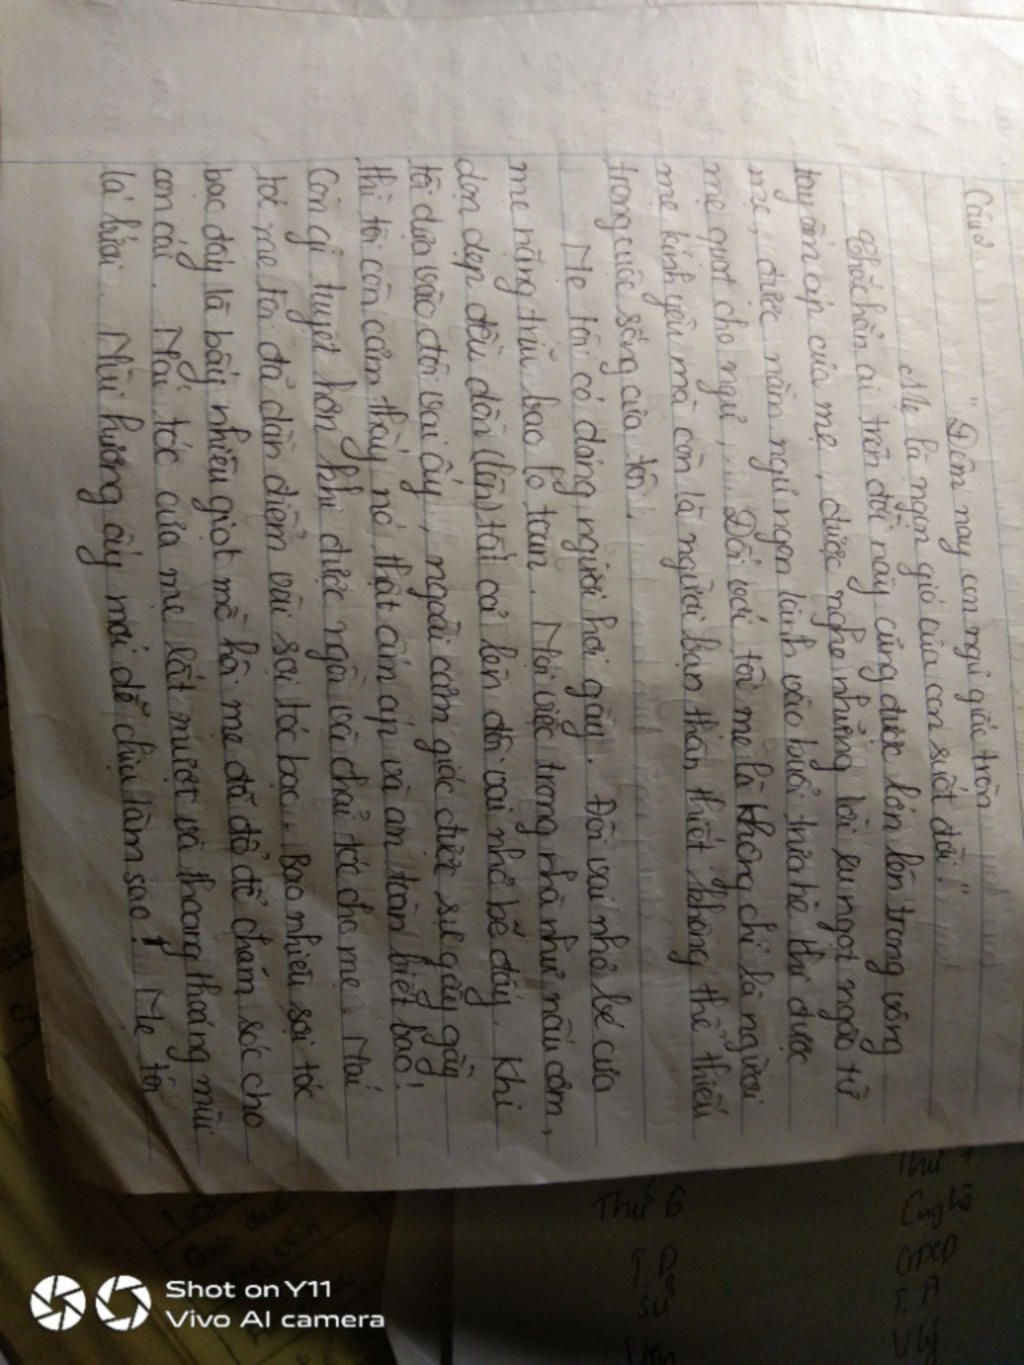 Câu 2.
"Đêm nay con ngủ giấc tròn
Mẹ là ngọn gió của con suốt đời."
Chắc hẳn ai trên đời này cũng được lớn lên trong vòng
tay ấm áp của mẹ, được nghe những lời ru ngọt ngào từ
mẹ, được nằm ngủ ngon lành vào buổi trưa hè khi được
mẹ quạt cho ngủ,... Đối với tôi mẹ là không chỉ là người
mẹ kính yêu mà còn là người bạn thân thiết không thể thiếu
trong cuộc sống của tôi.
Mẹ tôi có dáng người hơi gầy. Đôi vai nhỏ bé của
mẹ nặng trĩu bao lo toan. Mọi việc trong nhà như nấu cơm,
dọn dẹp đều dồn (lên) tất cả lên đôi vai nhỏ bé đấy. Khi
tôi dựa vào đôi vai ấy, ngoài cảm giác được sự gầy gầy
thì tôi còn cảm thấy nó thật ấm áp và an toàn biết bao!
Còn gì tuyệt hơn khi được ngồi và chải tóc cho mẹ. Mái
tóc mẹ tôi đã dần điểm vài sợi tóc bạc. Bao nhiêu sợi tóc
bạc đấy là bấy nhiêu giọt mồ hôi mẹ đã đổ để chăm sóc cho
con cái. Mái tóc của mẹ lất mượt và thoang thoảng mùi
lá bưởi. Mùi hương ấy mới dễ chịu làm sao! Mẹ tôi
Thứ 6
T.D
Sử
Văn
Thứ 7
C nghệ
GDCD
T. A
V lý
Lịch
Giáo dục